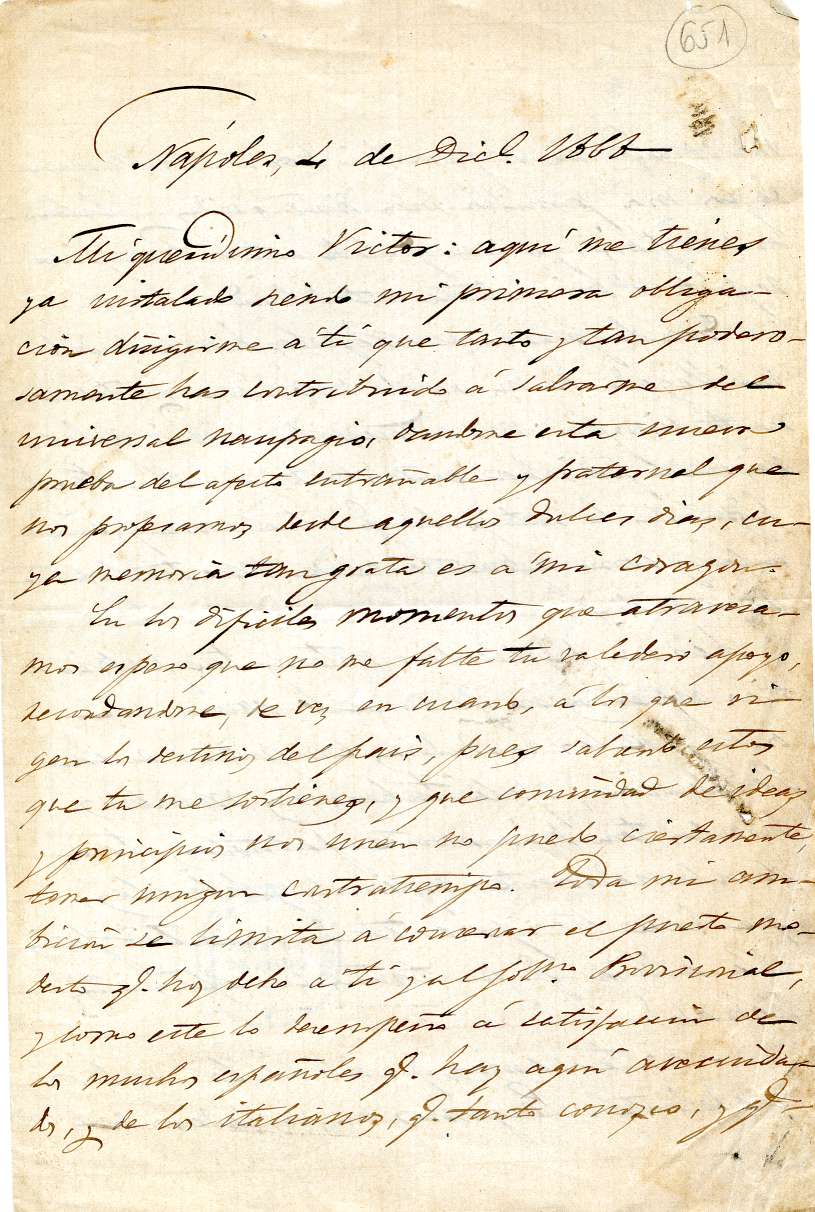 651
Nápoles, 4 de Dice. 1868
Mi queridisimo Victor: aquí me tienes
ya instalado siendo mi primera obliga-
ción dirigirme a tí que tanto y tan podero-
samente has contribuido á salvarme del
universal naufragio, dandome esta nueva
prueba del afecto entrañable y fraternal que
nos profesamos desde aquellos dulces dias, cu-
ya memoria tan grata es a mi corazon.
En los dificiles momentos que atravesa-
mos espero que no me falte tu valedero apoyo,
recordandome, de vez en cuando, á los que ri-
gen los destinos del pais, pues sabiendo estos
que tu me sostienes, y que comunidad de ideas
y principios nos unen no puedo ciertamente,
temer ningun contratiempo. Toda mi am-
bición se limita á conservar el puesto mo-
desto q. hoy debo a tí y al Gobno. Provisional,
y como este lo desempeño á satisfaccion de
los muchos españoles q. hay aquí avecinda-
dos, y de los italianos, q. tanto conozco, y q.